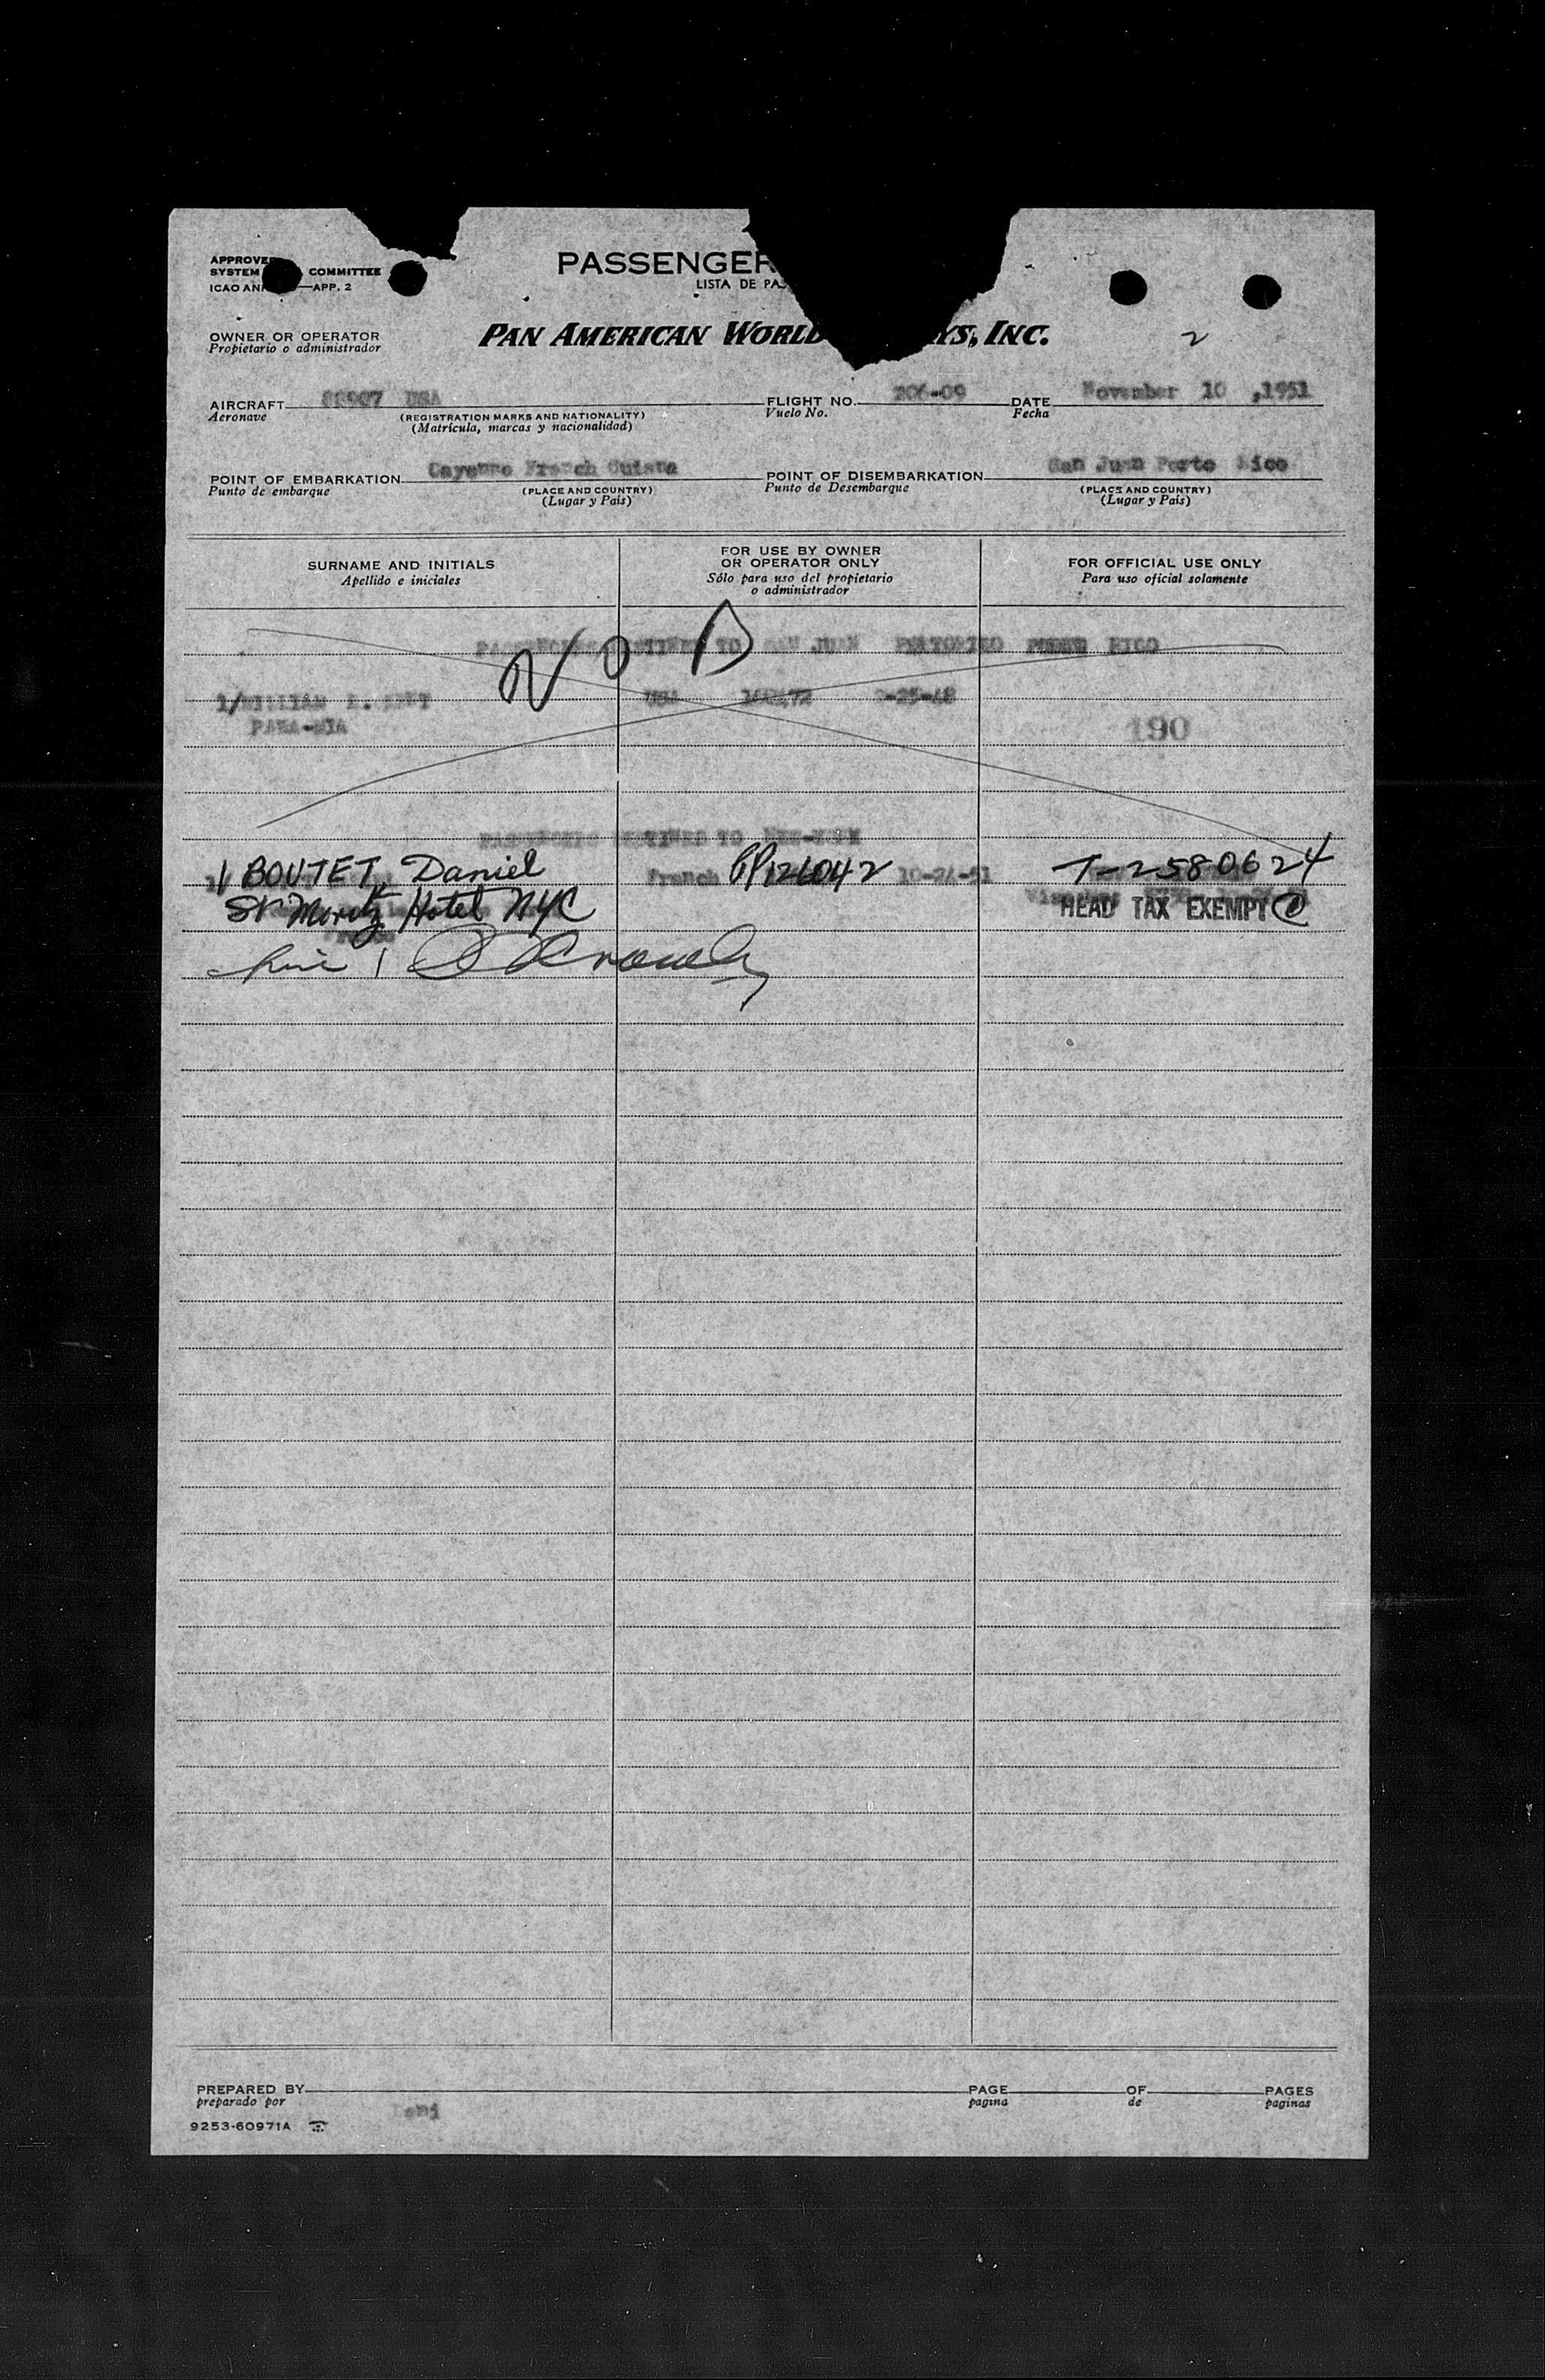 APPROVE
SYSTEM COMMITTEE
ICAO AN —APP. 2
PASSENGER
LISTA DE PAS
OWNER OR OPERATOR
Propietario o administrador
PAN AMERICAN WORLD YS, INC.
2
AIRCRAFT 88907 USA
Aeronave
(REGISTRATION MARKS AND NATIONALITY)
(Matrícula, marcas y nacionalidad)
FLIGHT NO. 206-09
Vuelo No.
DATE November 10 ,1951
Fecha
POINT OF EMBARKATION Cayenne French Guiana
Punto de embarque
(PLACE AND COUNTRY)
(Lugar y País)
POINT OF DISEMBARKATION San Juan Porto Rico
Punto de Desembarque
(PLACE AND COUNTRY)
(Lugar y País)
SURNAME AND INITIALS
Apellido e iniciales
FOR USE BY OWNER
OR OPERATOR ONLY
Sólo para uso del propietario
o administrador
FOR OFFICIAL USE ONLY
Para uso oficial solamente
TO SAN JUAN RICO
N O B
1/WILLIAM USA -25-48
190
TO NEW-YORK
1 BOUTET Daniel French PP126042 10-24-51 T-2580624
St Moritz Hotel NYC HEAD TAX EXEMPT
PREPARED BY
preparado por
PAGE
pagina
OF
de
PAGES
paginas
9253-60971A